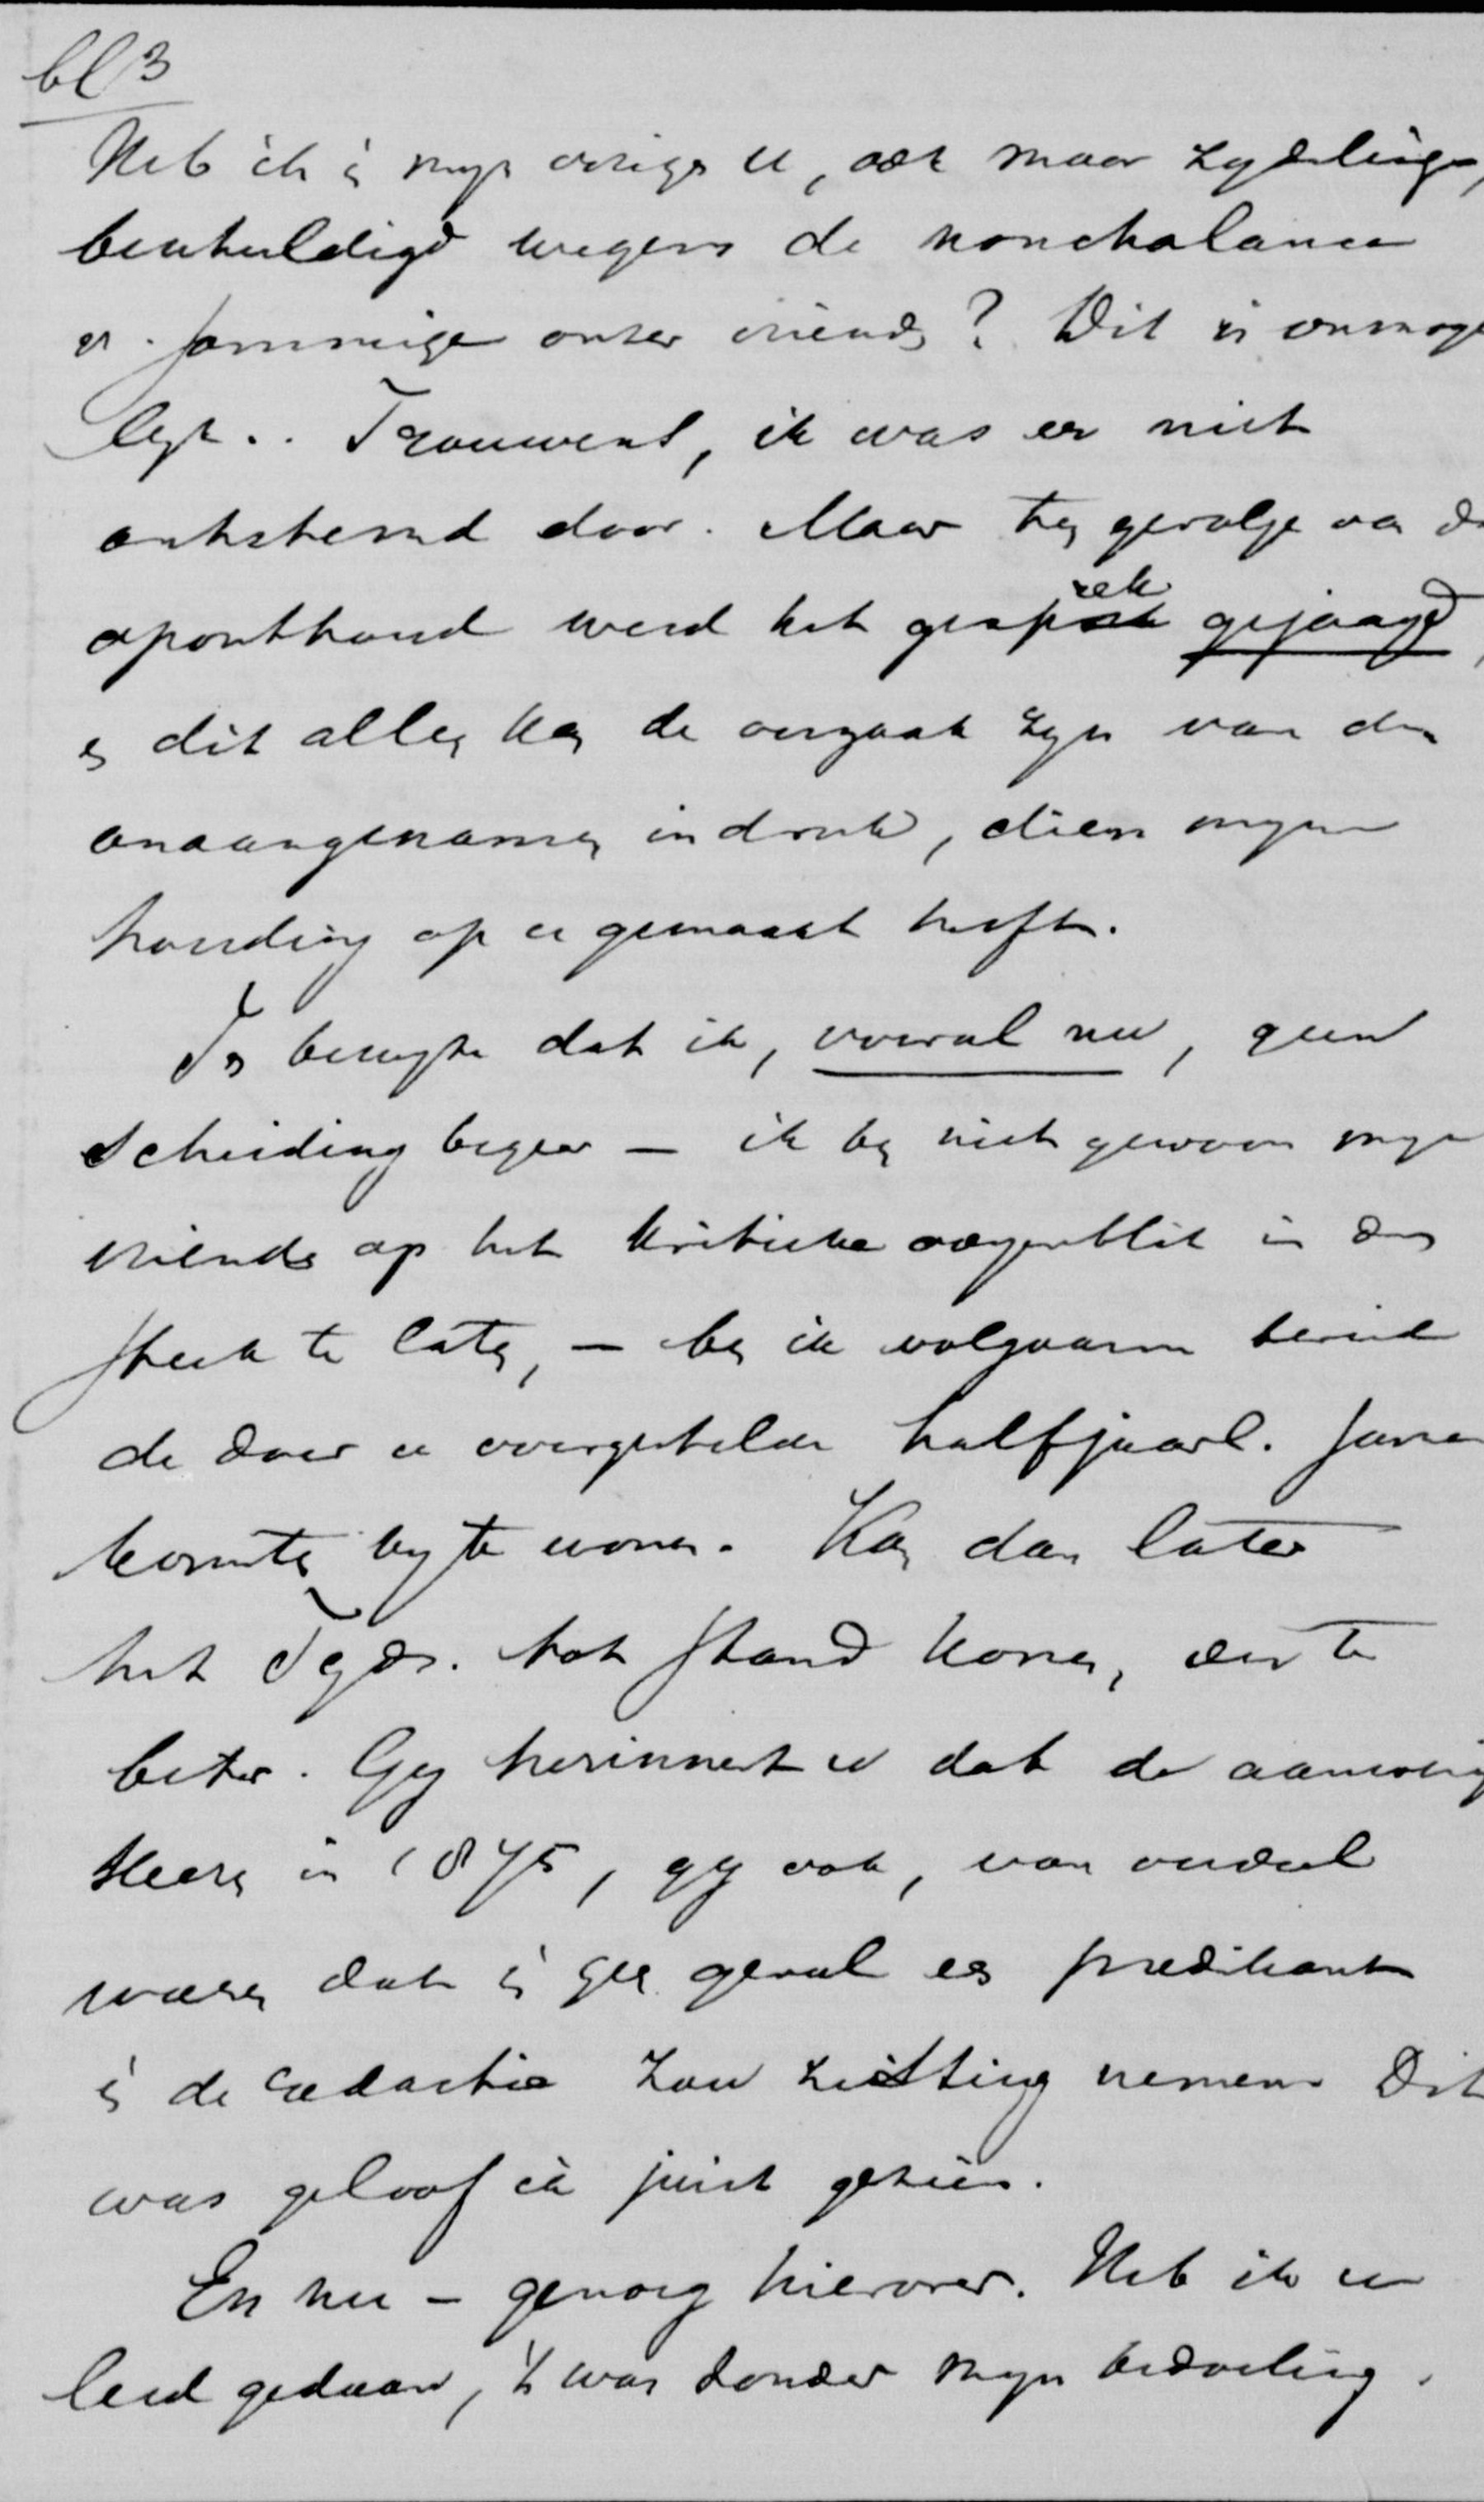 bl 3
Heb ik in mijn vorige U, ook maar zijdelings,
beschuldigd wegens de nonchalance
v. sommige onzer vrienden? Dit is onmoge
lijk.. Trouwens, ik was er niet
ontstemd door. Maar ten gevolge van de
oponthoud werd het gesprek gejaagd,
en dit alles kan de oorzaak zijn van den
onaangenamen indruk, dien mijne
houding op u gemaakt heeft.
Ten bewijze dat ik, vooral nu, geen
scheiding begeer — ik ben niet gewoon mijn
vrienden op het kritieke oogenblik in den
steek te laten, — ben ik volgaarne bereid
de door u voorgestelde halfjaarl. samen
komsten bij te wonen. Kan dan later
het Tijds. tot stand komen, des te
beter. Gij herinnert u dat de aanwezig
Heeren in 1875, gij ook, van oordeel
waren dat in geen geval een predikant
in de redactie zou zitting nemen Dit
was geloof ik juist gezien.
En nu — genoeg hierover. Heb ik u
leed gedaan, 't was zonder mijn bedoeling.